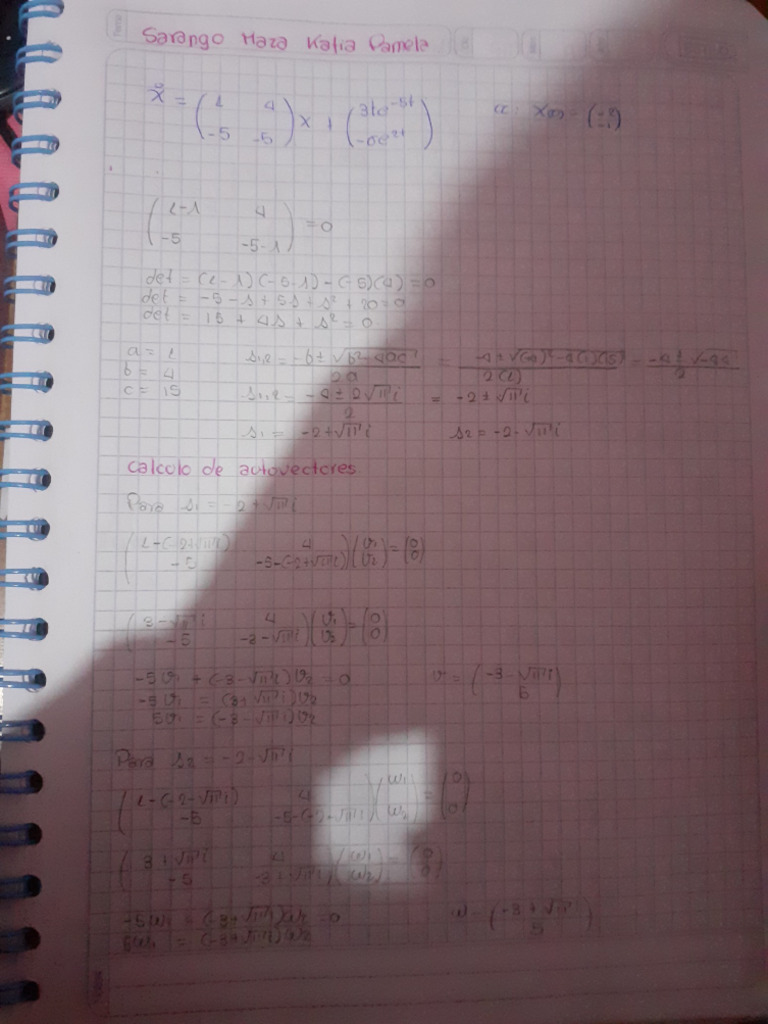 Sarango Maza Katia Pamela
ẋ = (1 4 / -5 -5) x + (3te^-5t / e^2t) x(0) =
(1-s 4 / -5 -5-s) = 0
det = (1-s)(-5-s) - (-5)(4) = 0
det = -5 - s + 5s + s² + 20 = 0
det = 15 + 4s + s² = 0
a = 1 s1,2 = -b ± √b² - 4ac / 2a = -4 ± √(4)² - 4(1)(15) / 2(1) = -4 ± √-44 / 2
b = 4
c = 15 s1,2 = -4 ± 2√11 i / 2 = -2 ± √11 i
s1 = -2 + √11 i s2 = -2 - √11 i
Calculo de autovectores
Para s1 = -2 + √11 i
(1-(-2+√11 i) 4 / -5 -5-(-2+√11 i)) (v1 / v2) = (0 / 0)
(3-√11 i 4 / -5 -3-√11 i) (v1 / v2) = (0 / 0)
-5v1 + (-3-√11 i) v2 = 0 v = (-3-√11 i / 5)
-5v1 = (3+√11 i) v2
5v1 = (-3-√11 i) v2
Para s2 = -2 - √11 i
(1-(-2-√11 i) 4 / -5 -5-(-2-√11 i)) (w1 / w2) = (0 / 0)
(3+√11 i 4 / -5 -3+√11 i) (w1 / w2) = (0 / 0)
-5w1 + (-3+√11 i) w2 = 0 w = (-3+√11 i / 5)
5w1 = (-3+√11 i) w2